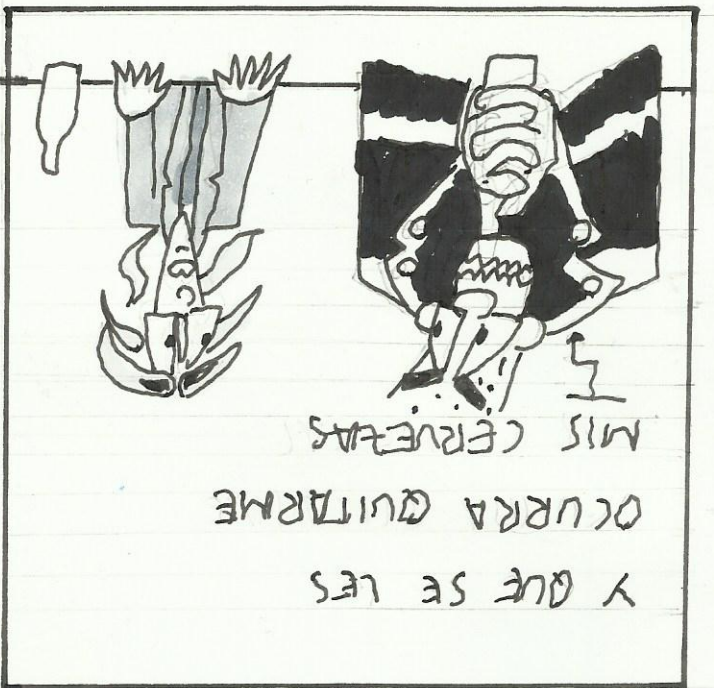 Y QUE SE LES
OCURRA QUITARME
MIS CERVEZAS